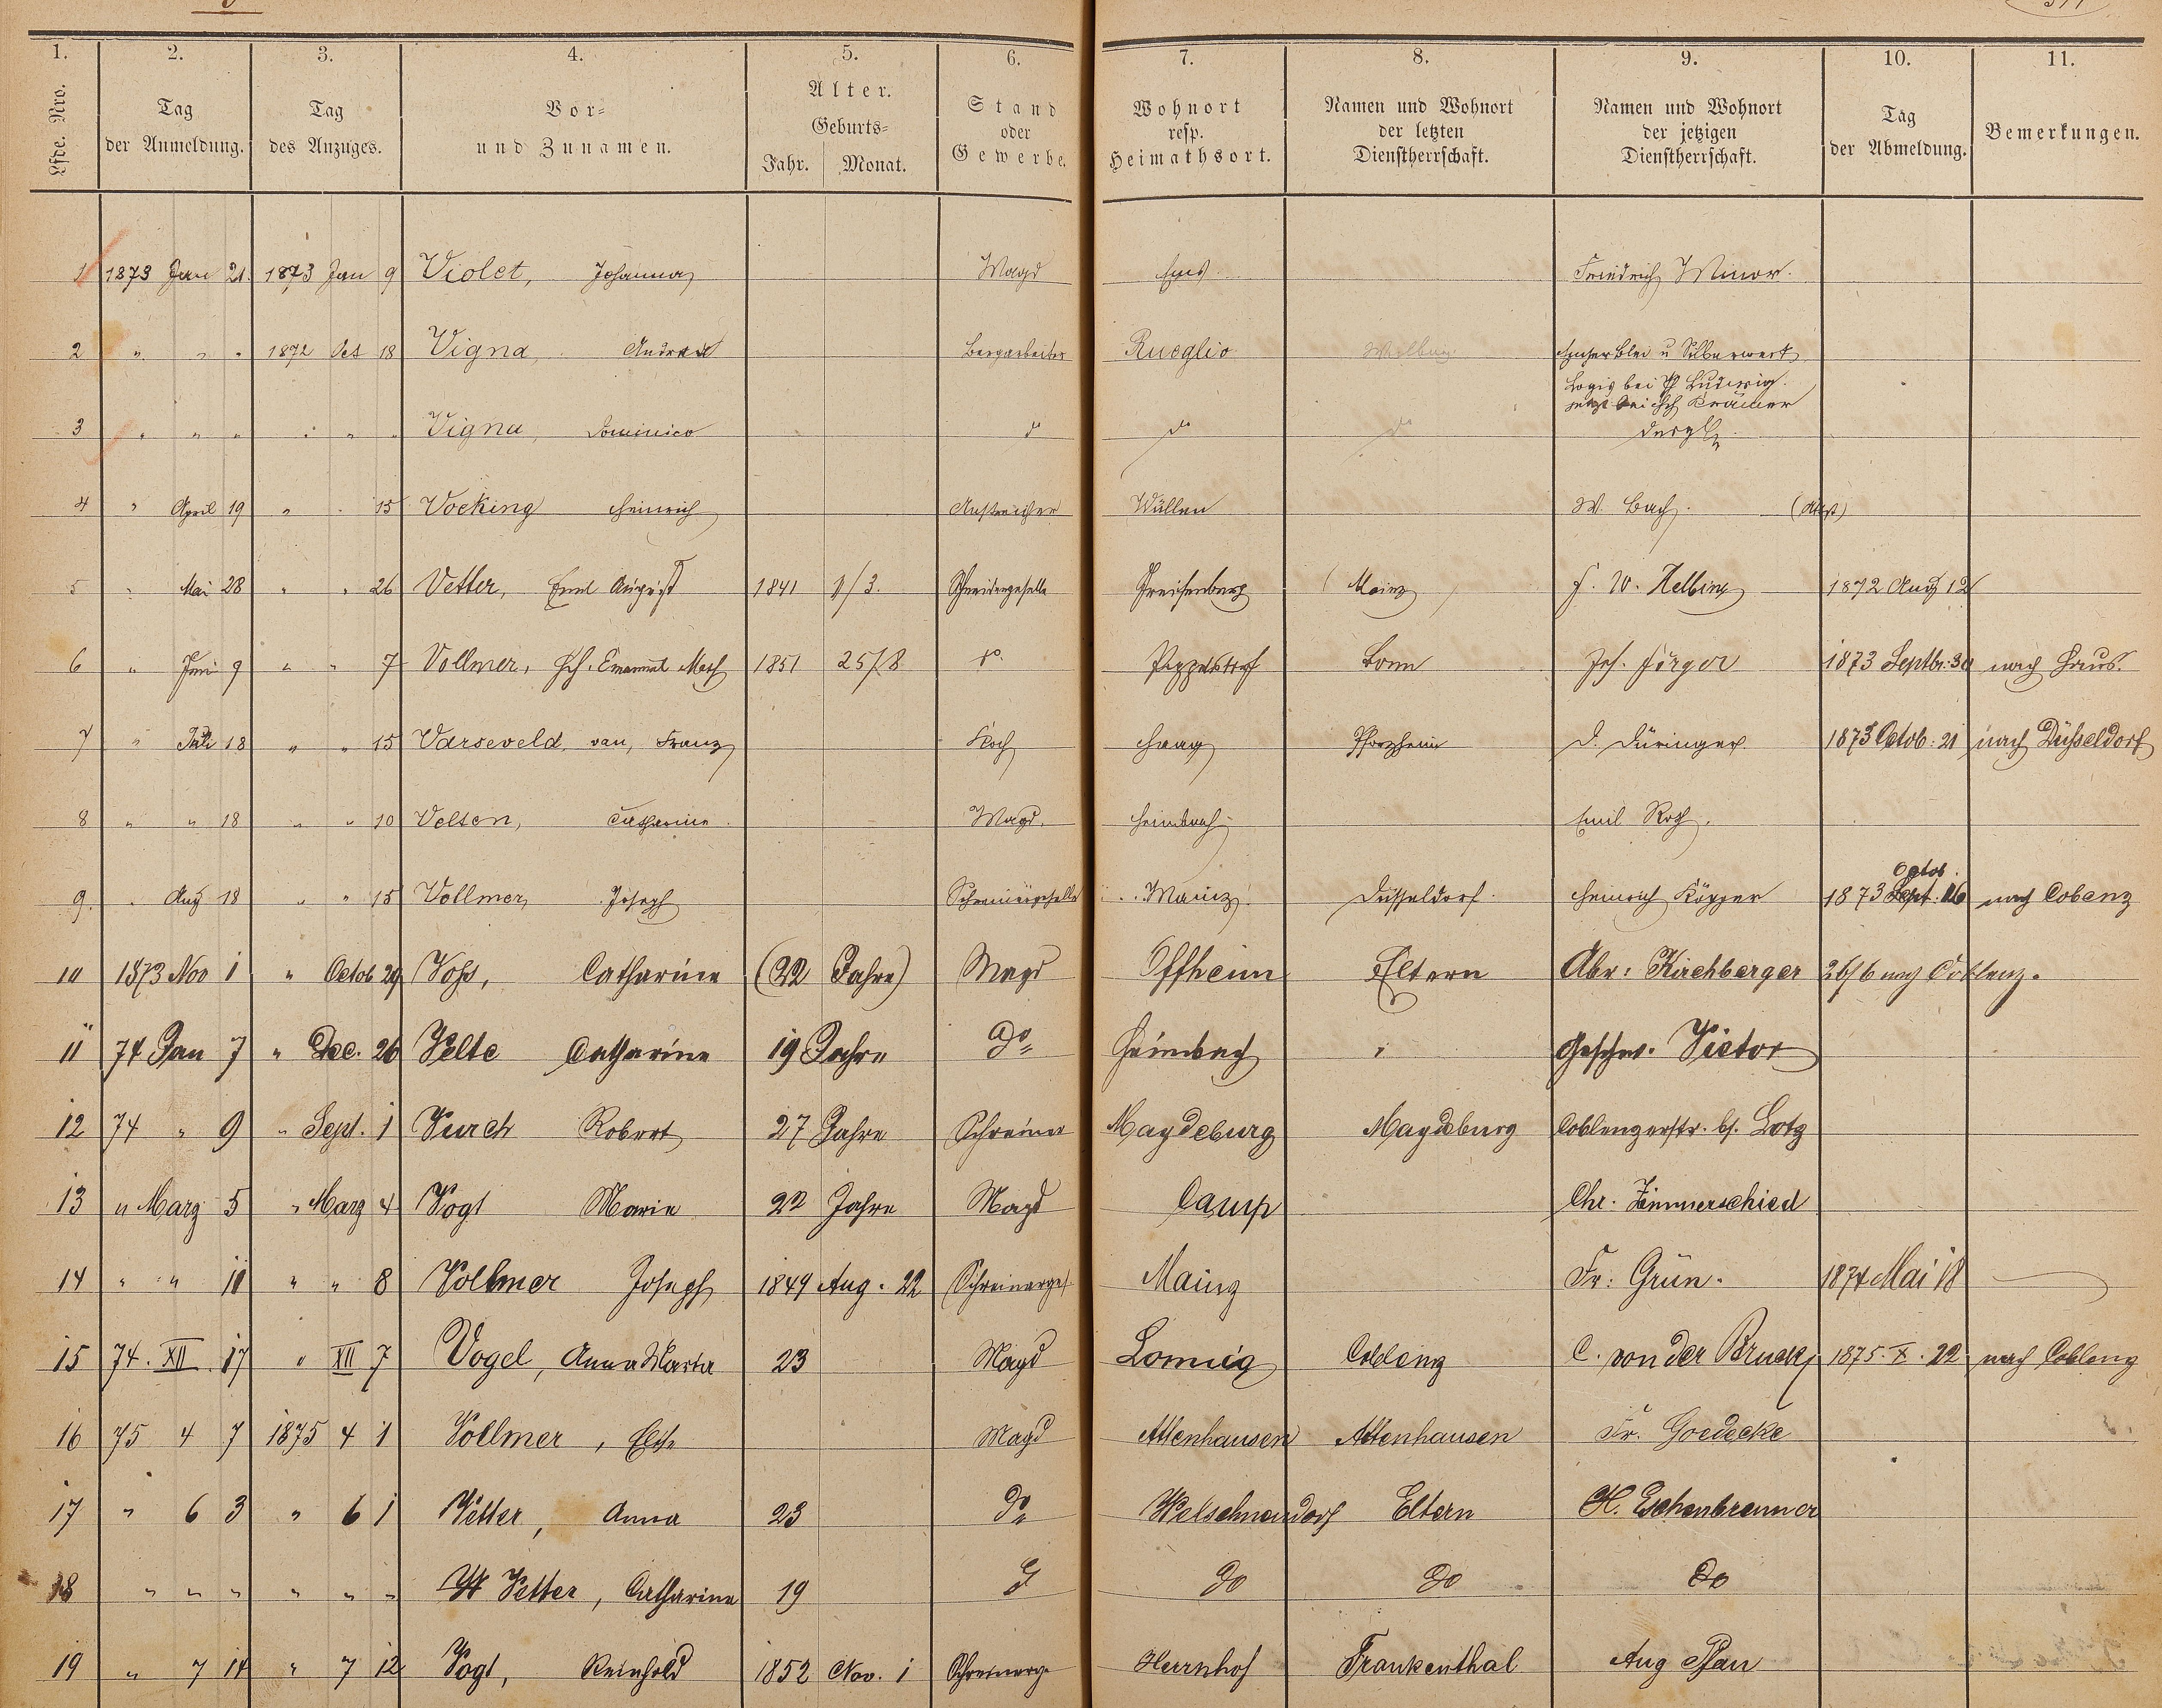 1. 2. 3. 4. 5. 6. 7. 8. 9. 10. 11.
Lfde. Nro. Tag der Anmeldung. Tag des Anzuges. Vor- und Zunamen. Alter. Geburts- Jahr. Monat. Stand oder Gewerbe. Wohnort resp. Heimathsort. Namen und Wohnort der letzten Dienstherrschaft. Namen und Wohnort der jetzigen Dienstherrschaft. Tag der Abmeldung. Bemerkungen.
1 1873 Jan 21. 1873 Jan 9 Violet, Johanna Magd Ems. Friedrich Minor.
2 " " " 1872 Oct 18 Vigna, Bergarbeiter Rueglio Emser Blei u Silberwerk
Logis bei Ludwig.
jetzt bei Krämer
3 " " " " " " Vigna, Dominico do do do dergl.
4 " April 19 " " 15 Vocking Heinrich Anstreicher Wüllen W. Bach.
5 " Mai 28 " " 26 Vetter, Emil August 1841 1/3. Schreinergeselle Mainz F. W. Helbing 1872 Aug 12
6 " Juni 9 " " 7 Vollmer, Hch. Emanuel 1851 25/8 do. Poppelsdorf Bonn Jos. Jörger 1873 Septbr. 30 nach Haus.
7 " Juli 18 " " 15 Varseveld, van, Franz Koch Haag Pforzheim D. Düringer 1873 Octob: 21 nach Düsseldorf
8 " " 18 " " 10 Velten, Catharine. Magd. Heimbach Emil Roth.
9. " Aug 18 " " 15 Vollmer, Joseph Schreinergeselle Mainz. Düsseldorf. Heinrich Köpper 1873 Sept. Octob. 16 nach Cobenz
10 1873 Nov 1 " Octob 29 Voss, Catharine (22 Jahre) Magd Offheim Eltern Abr: Kirchberger 26/6 nach Coblenz.
11 74 Jan 7 " Dec. 26 Velte Catharine 19 Jahre Do Heimbach " Geschw. Victor
12 74 " 9 " Sept. 1 Vurch Robert 27 Jahre Schreiner Magdeburg Magdeburg Coblenzerstr. bs. Lotz
13 " Marz 5 " Marz 4 Vogt Marie 22 Jahre Magd Camp Chr. Zimmerschied
14 " " 11 " " 8 Vollmer Joseph 1849 Aug. 22 Schreinerges Mainz Fr: Grün. 1874 Mai 18
15 74. XII. 17 " XII 7 Vogel, Anna Maria 23 Magd Lonnig Coblenz C. von der Bruck 1875. X. 22 nach Coblenz
16 75 4 7 1875 4 1 Vollmer, Elise Magd Attenhausen Attenhausen Fr. Goedecke
17 " 6 3 " 6 1 Vetter, Anna 23 Do Welschneudorf Eltern H. Eschenbrenner
18 " " " " " " Vetter, Catharina 19 Do Do Do
19 " 7 14 " 7 12 Vogt, Reinhold 1852 Nov. 1 Schreinerge Herrnhof Frankenthal Aug Pfau